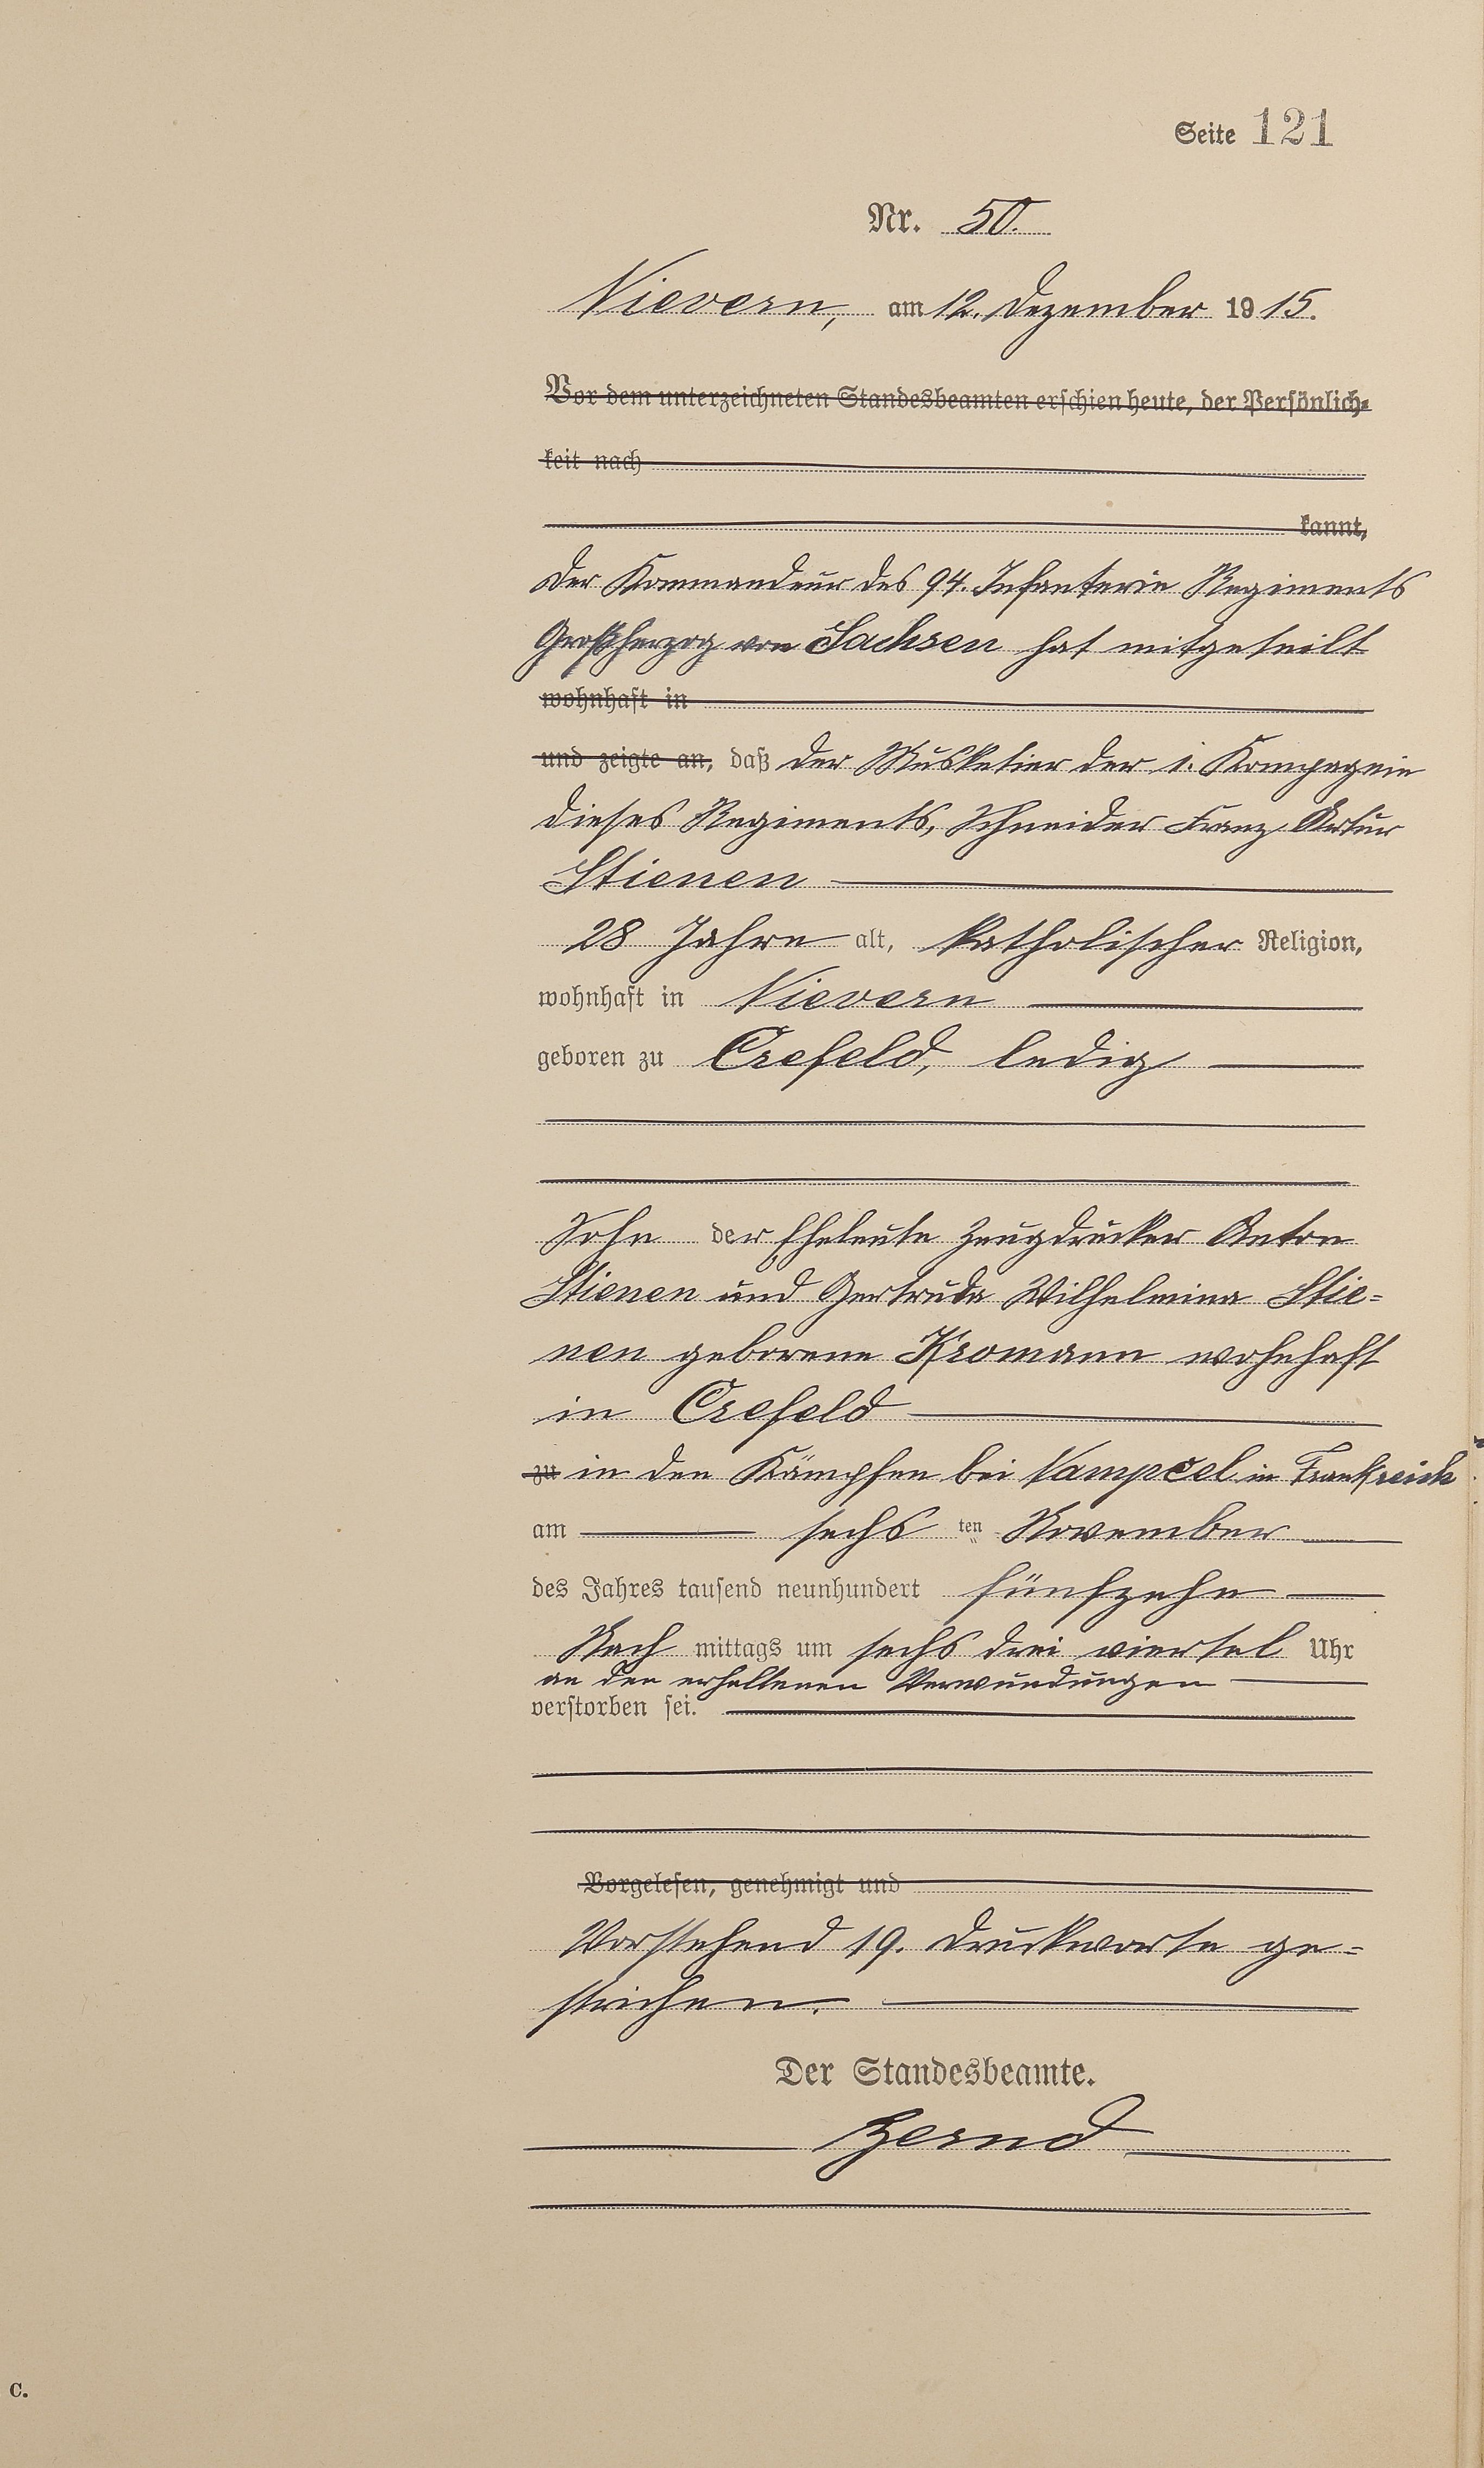 Seite 121
Nr. 50.
Nievern, am 12. Dezember 1915.
Vor dem unterzeichneten Standesbeamten erschien heute, der Persönlich-
keit nach
kannt,
Der Kommandeur des 94. Infanterie Regiments
Großherzog von Sachsen hat mitgeteilt
wohnhaft in
und zeigte an, daß der Musketier der 1. Kompagnie
dieses Regiments, Schneider Franz Artur
Stienen
28 Jahre alt, katholischer Religion,
wohnhaft in Nievern
geboren zu Crefeld, ledig
Sohn der Eheleute Zeugdrucker Anton
Stienen und Gertruda Wilhelmina Stie-
nen geborene Kromann wohnhaft
in Crefeld
zu in den Kämpfen bei Vampcel in Frankreich
am sechs ten November
des Jahres tausend neunhundert fünfzehn
Nach mittags um sechs drei viertel Uhr
an den erhaltenen Verwundungen
verstorben sei.
Vorgelesen, genehmigt und
Vorstehend 19. Druckworte ge-
strichen.
Der Standesbeamte.
Zernd
C.